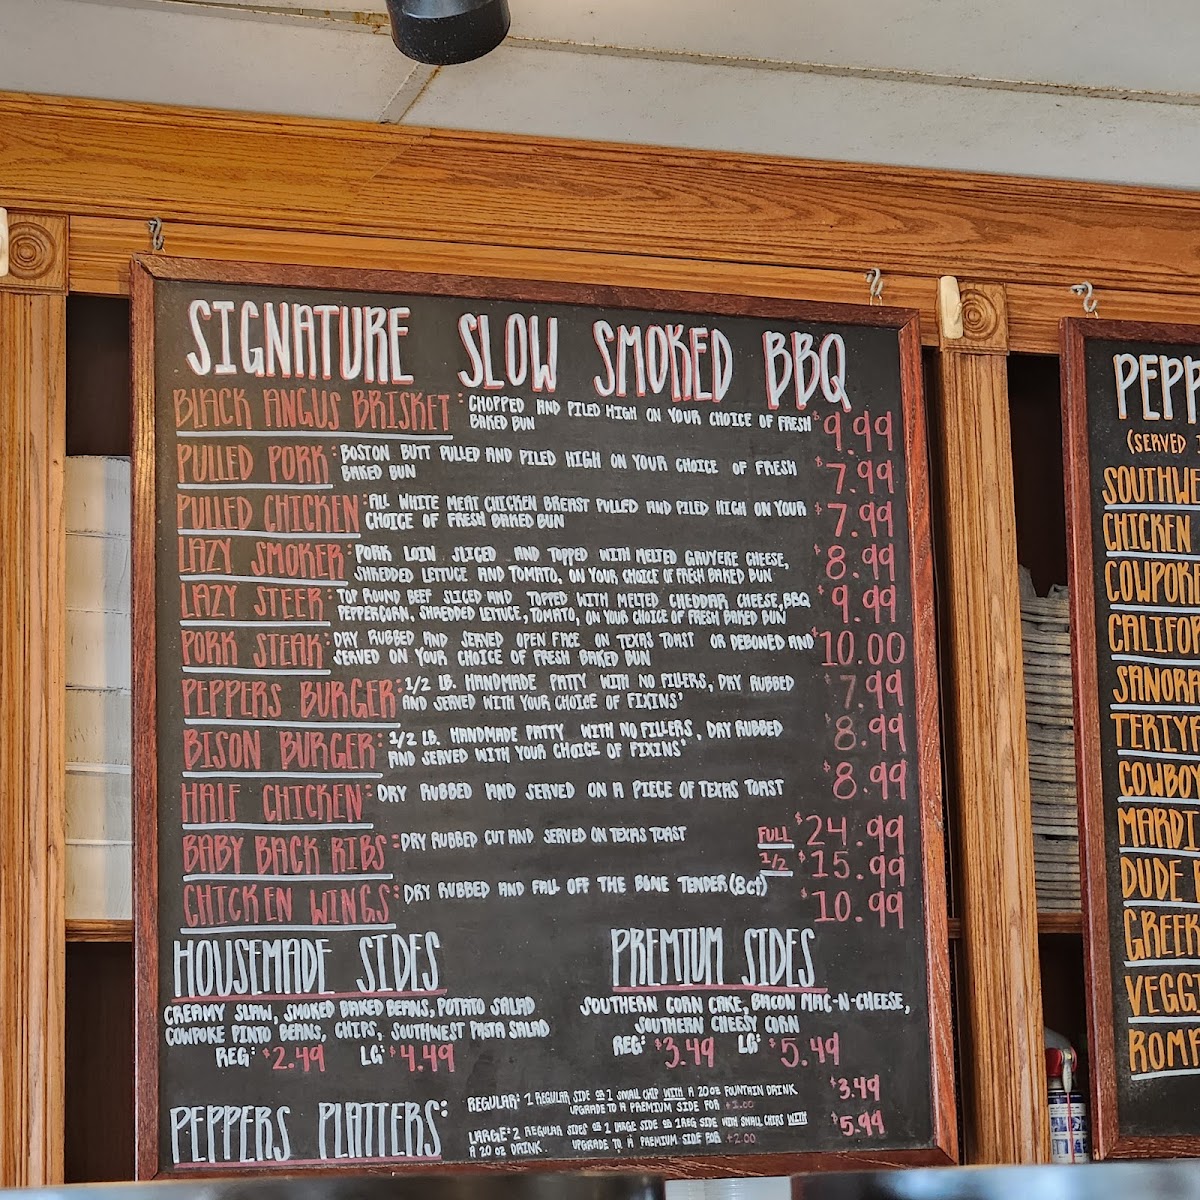 SIGNATURE SLOW SMOKED BBQ
BLACK ANGUS BRISKET: CHOPPED AND PILED HIGH ON YOUR CHOICE OF FRESH $9.99
BAKED BUN
PULLED PORK: BOSTON BUTT PULLED AND PILED HIGH ON YOUR CHOICE OF FRESH $7.99
BAKED BUN
PULLED CHICKEN: ALL WHITE MEAT CHICKEN BREAST PULLED AND PILED HIGH ON YOUR $7.99
CHOICE OF FRESH BAKED BUN
LAZY SMOKER: PORK LOIN SLICED AND TOPPED WITH MELTED GRUYERE CHEESE, $8.99
SHREDDED LETTUCE AND TOMATO, ON YOUR CHOICE OF FRESH BAKED BUN
LAZY STEER: TOP ROUND BEEF SLICED AND TOPPED WITH MELTED CHEDDAR CHEESE, BBQ $9.99
PEPPERCORN, SHREDDED LETTUCE, TOMATO, ON YOUR CHOICE OF FRESH BAKED BUN
PORK STEAK: DRY RUBBED AND SERVED OPEN FACE ON TEXAS TOAST OR DEBONED AND $10.00
SERVED ON YOUR CHOICE OF FRESH BAKED BUN
PEPPERS BURGER: 1/2 LB. HANDMADE PATTY WITH NO FILLERS, DRY RUBBED $7.99
AND SERVED WITH YOUR CHOICE OF FIXINS'
BISON BURGER: 1/2 LB. HANDMADE PATTY WITH NO FILLERS, DRY RUBBED $8.99
AND SERVED WITH YOUR CHOICE OF FIXINS'
HALF CHICKEN: DRY RUBBED AND SERVED ON A PIECE OF TEXAS TOAST $8.99
BABY BACK RIBS: DRY RUBBED CUT AND SERVED ON TEXAS TOAST FULL $24.99
1/2 $15.99
CHICKEN WINGS: DRY RUBBED AND FALL OFF THE BONE TENDER (8ct) $10.99
HOUSEMADE SIDES
CREAMY SLAW, SMOKED BAKED BEANS, POTATO SALAD
COWPOKE PINTO BEANS, CHIPS, SOUTHWEST PASTA SALAD
REG: $2.49 LG: $4.49
PREMIUM SIDES
SOUTHERN CORN CAKE, BACON MAC-N-CHEESE,
SOUTHERN CHEESY CORN
REG: $3.49 LG: $5.49
PEPPERS PLATTERS:
REGULAR: 1 REGULAR SIDE OR 1 SMALL CHIP WITH A 20 OZ FOUNTAIN DRINK $3.49
UPGRADE TO A PREMIUM SIDE FOR $1.00
LARGE: 2 REGULAR SIDES OR 1 LARGE SIDE OR 1 REG SIDE WITH SMALL CHIPS WITH $5.99
A 20 OZ DRINK. UPGRADE TO A PREMIUM SIDE FOR $2.00
PEPP
(SERVED
SOUTHWE
CHICKEN
COWPOKE
CALIFOR
SANORA
TERIYA
COWBOY
MARDI
DUDE
GREEK
VEGG
ROMA